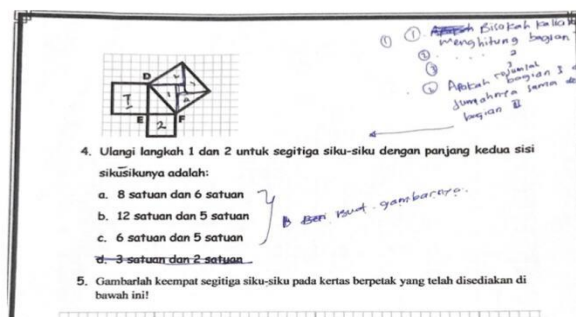 ① ① Bisakah kalian
menghitung bagian
② . . . . 2
③ 3
④ Apakah bagian I
jumahnya sama
bagian
D
I
1
2
E
2
F
4. Ulangi langkah 1 dan 2 untuk segitiga siku-siku dengan panjang kedua sisi
sikusikunya adalah:
a. 8 satuan dan 6 satuan
b. 12 satuan dan 5 satuan
Beri gambarnya.
c. 6 satuan dan 5 satuan
d. 3 satuan dan 2 satuan
5. Gambarlah keempat segitiga siku-siku pada kertas berpetak yang telah disediakan di
bawah ini!